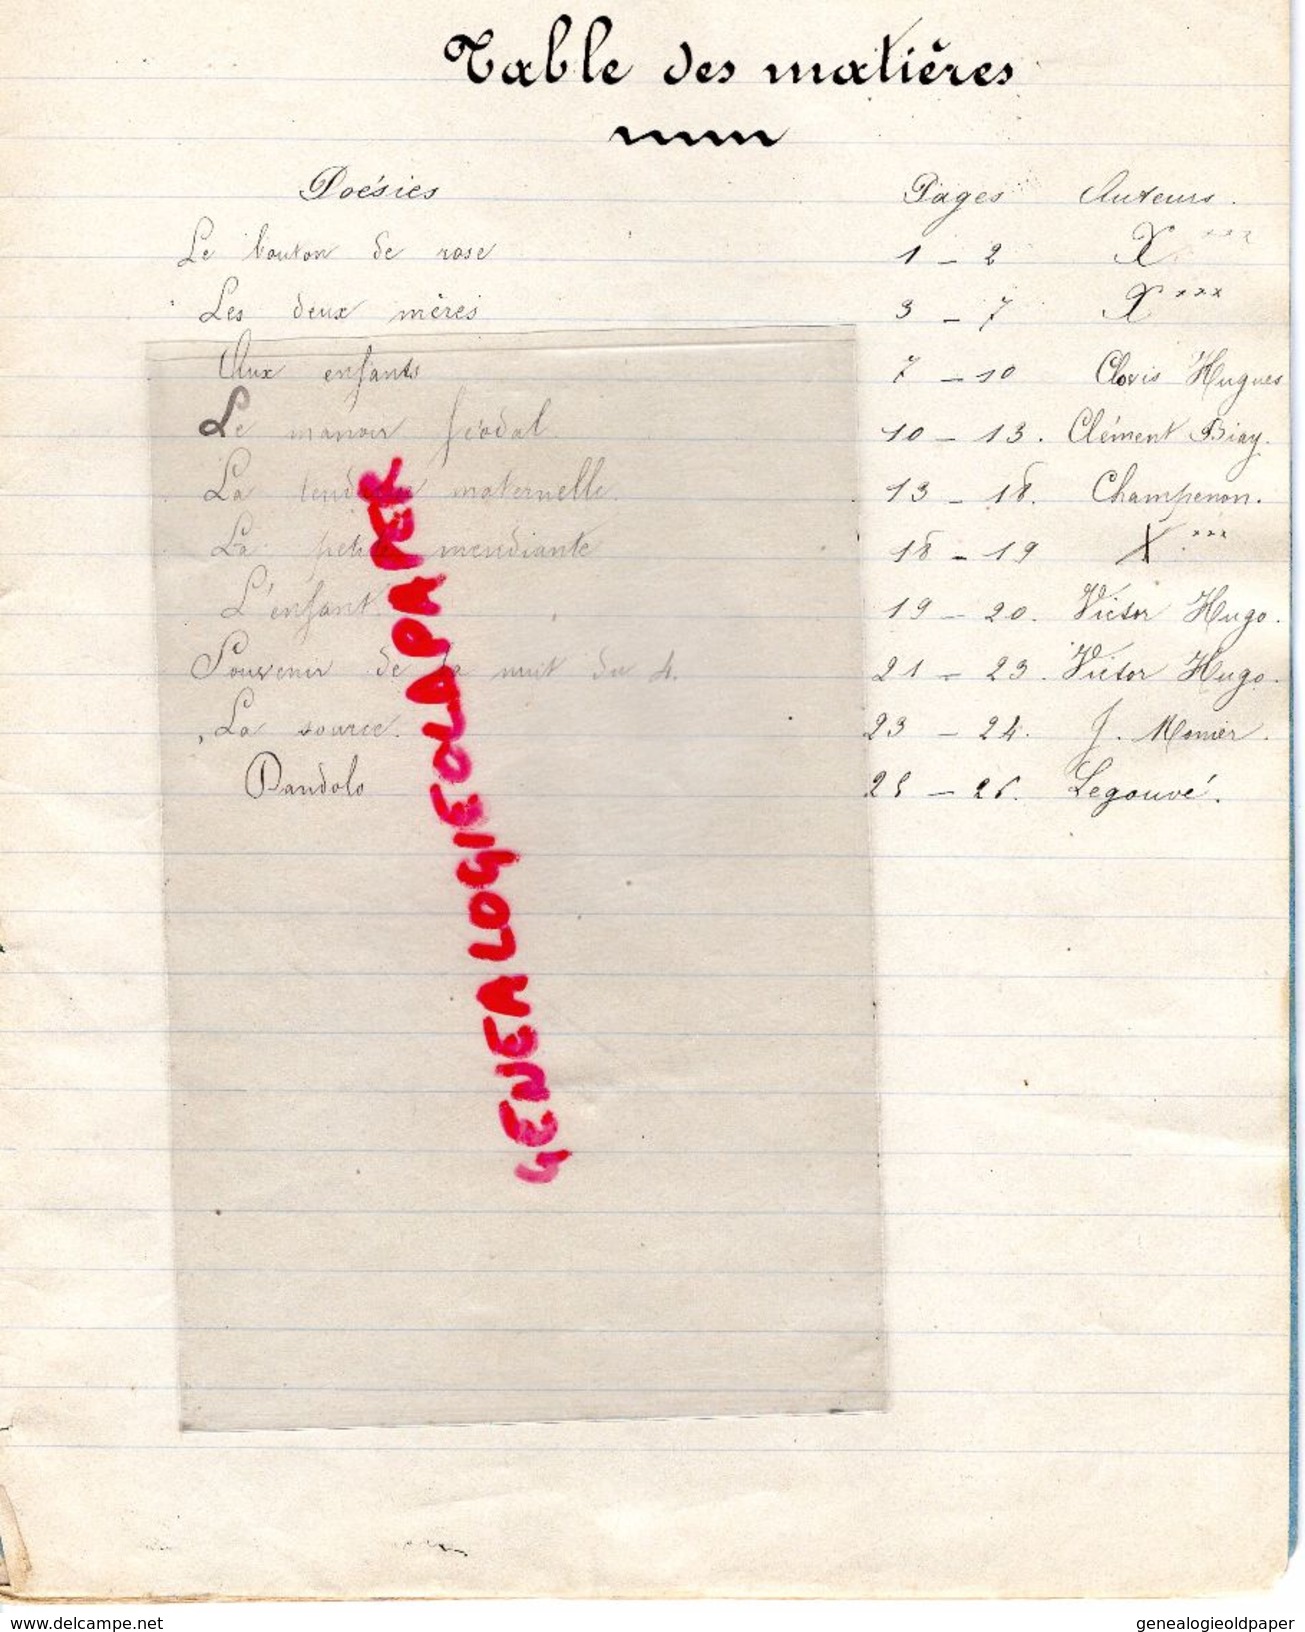 Table des matières
Poésies Pages Auteurs.
Le bouton de rose 1 - 2 X ***
Les deux mères 3 - 7 X ***
Aux enfants 7 - 10 Clovis Hugues
Le manoir féodal 10 - 13. Clément
La maternelle. 13 - 18. Champenon.
La petite mendiante 18 - 19 X ***
L'enfant. 19 - 20. Victor Hugo.
Souvenir de la nuit du 4. 21 - 23. Victor Hugo.
La source. 23 - 24. J. Monier.
Dandolo 25 - 26. Legouvé.
GENEALOGIEOLDPAPER
www.delcampe.net
genealogieoldpaper